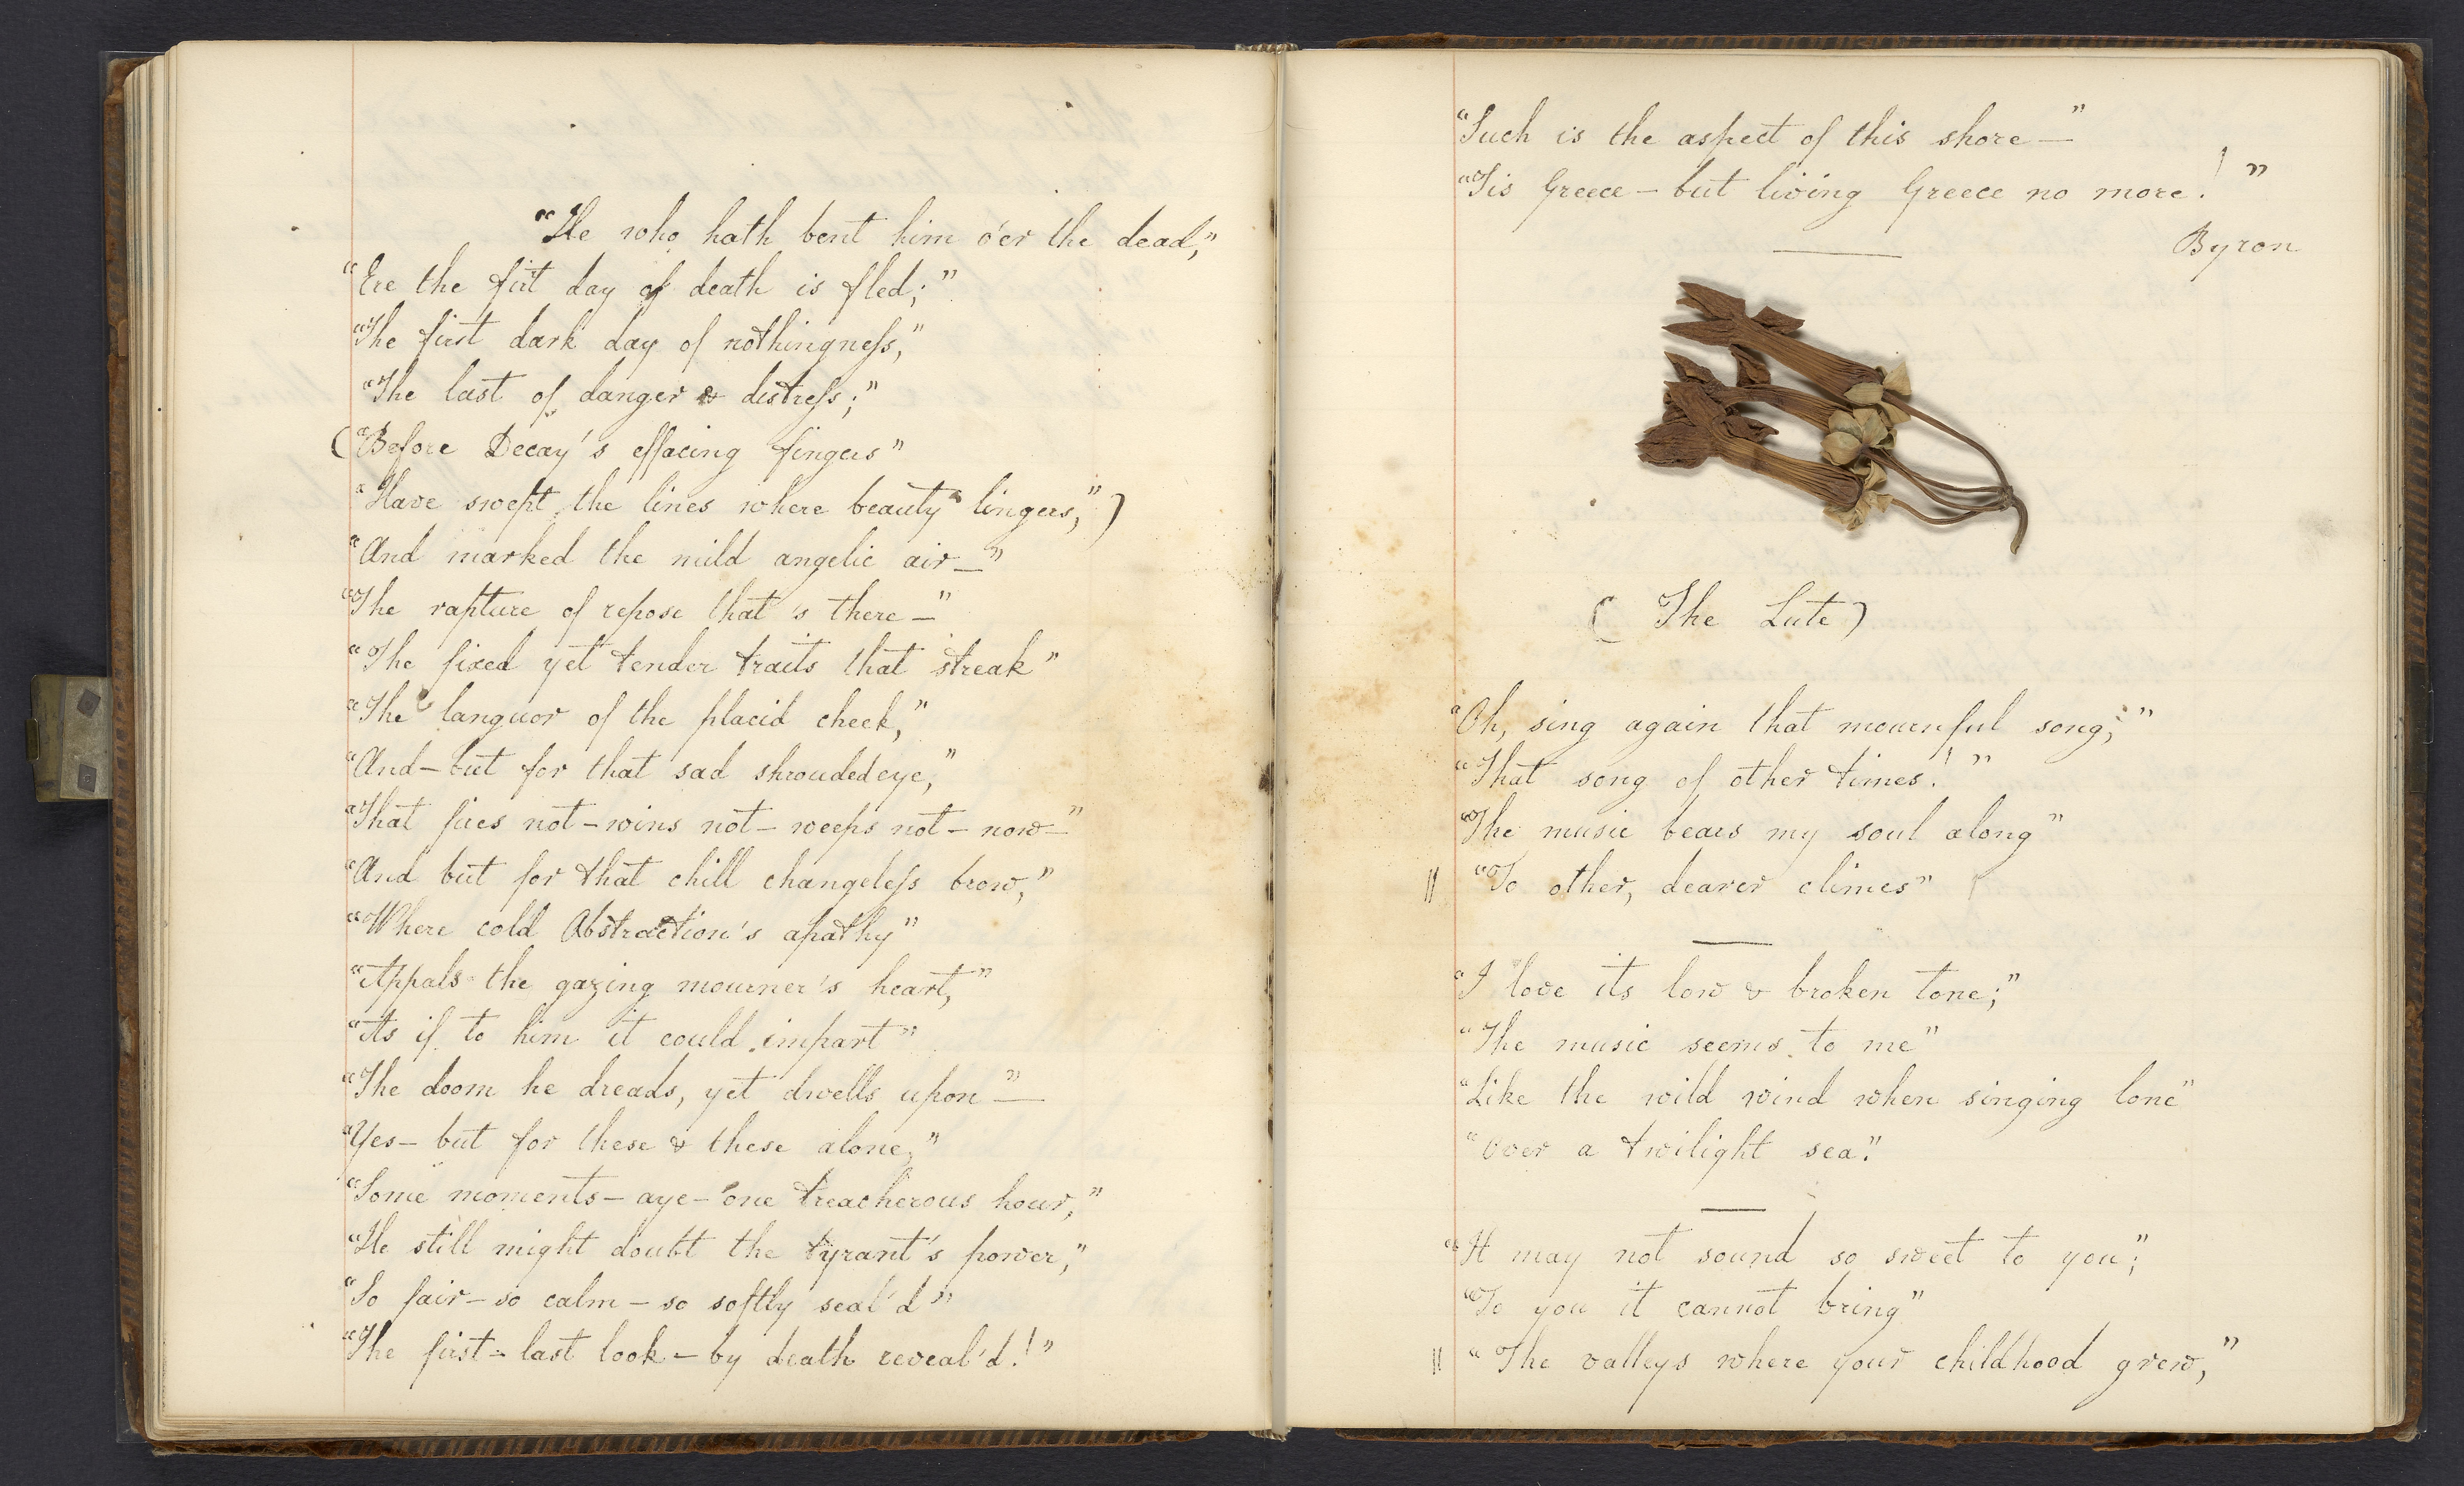 “He who hath bent him o'er the dead,”
“Ere the first day of death is fled;”
“The first dark day of nothingness,”
“The last of danger & distress;”
(“Before Decay's effacing fingers”
“Have swept the lines where beauty lingers,”)
“And marked the mild angelic air—”
“The rapture of repose that's there—”
“The fixed yet tender traits that streak”
“The languor of the placid cheek,”
“And—but for that sad shrouded eye,”
“That fires not—wins not—weeps not—now—”
“And but for that chill changeless brow,”
“Where cold Abstraction's apathy”
“Appals the gazing mourner's heart,”
“As if to him it could impart”
“The doom he dreads, yet dwells upon—”
“Yes—but for these & these alone,”
“Some moments—aye—one treacherous hour,”
“He still might doubt the tyrant's power,”
“So fair—so calm—so softly seal'd”
“The first—last look—by death reveal'd!”
“Such is the aspect of this shore—”
“Tis Greece—but living Greece no more!”
Byron
(The Lute)
“Oh, sing again that mournful song;”
“That song of other times!”
“The music bears my soul along”
“To other, dearer climes”
“I love its low & broken tone;”
“The music seems to me”
“Like the wild wind when singing lone”
“Over a twilight sea.”
“It may not sound so sweet to you”;
“To you it cannot bring”
“The valleys where your childhood grew,”